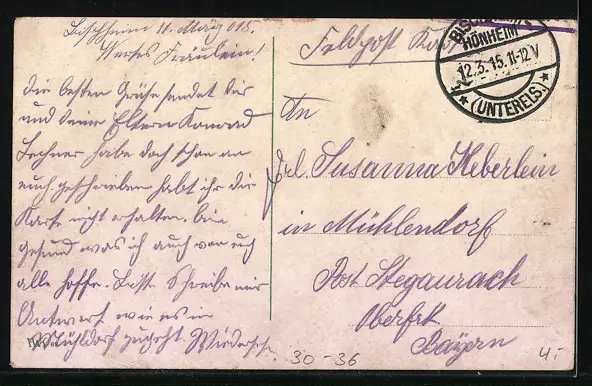 Bischheim 11. März 015.
Wertes Fräulein!
Die besten Grüße sendet dir
und deine Eltern Konrad
Lechner habe doch schon an
euch geschrieben habt ihr die
Karte nicht erhalten. bin
gesund was ich auch von euch
alle hoffe. Bitte Schreibe mir
Antwort wie es in
Mühldorf zugeht Wiedersehn
Feldpost Karte
HÖNHEIM
12.3.15.11-12V
* (UNTERELS.) *
An
Frl. Susanna Heberlein
in Mühlendorf
Post Stegaurach
Oberfrk
Bayern
30-36
4.-